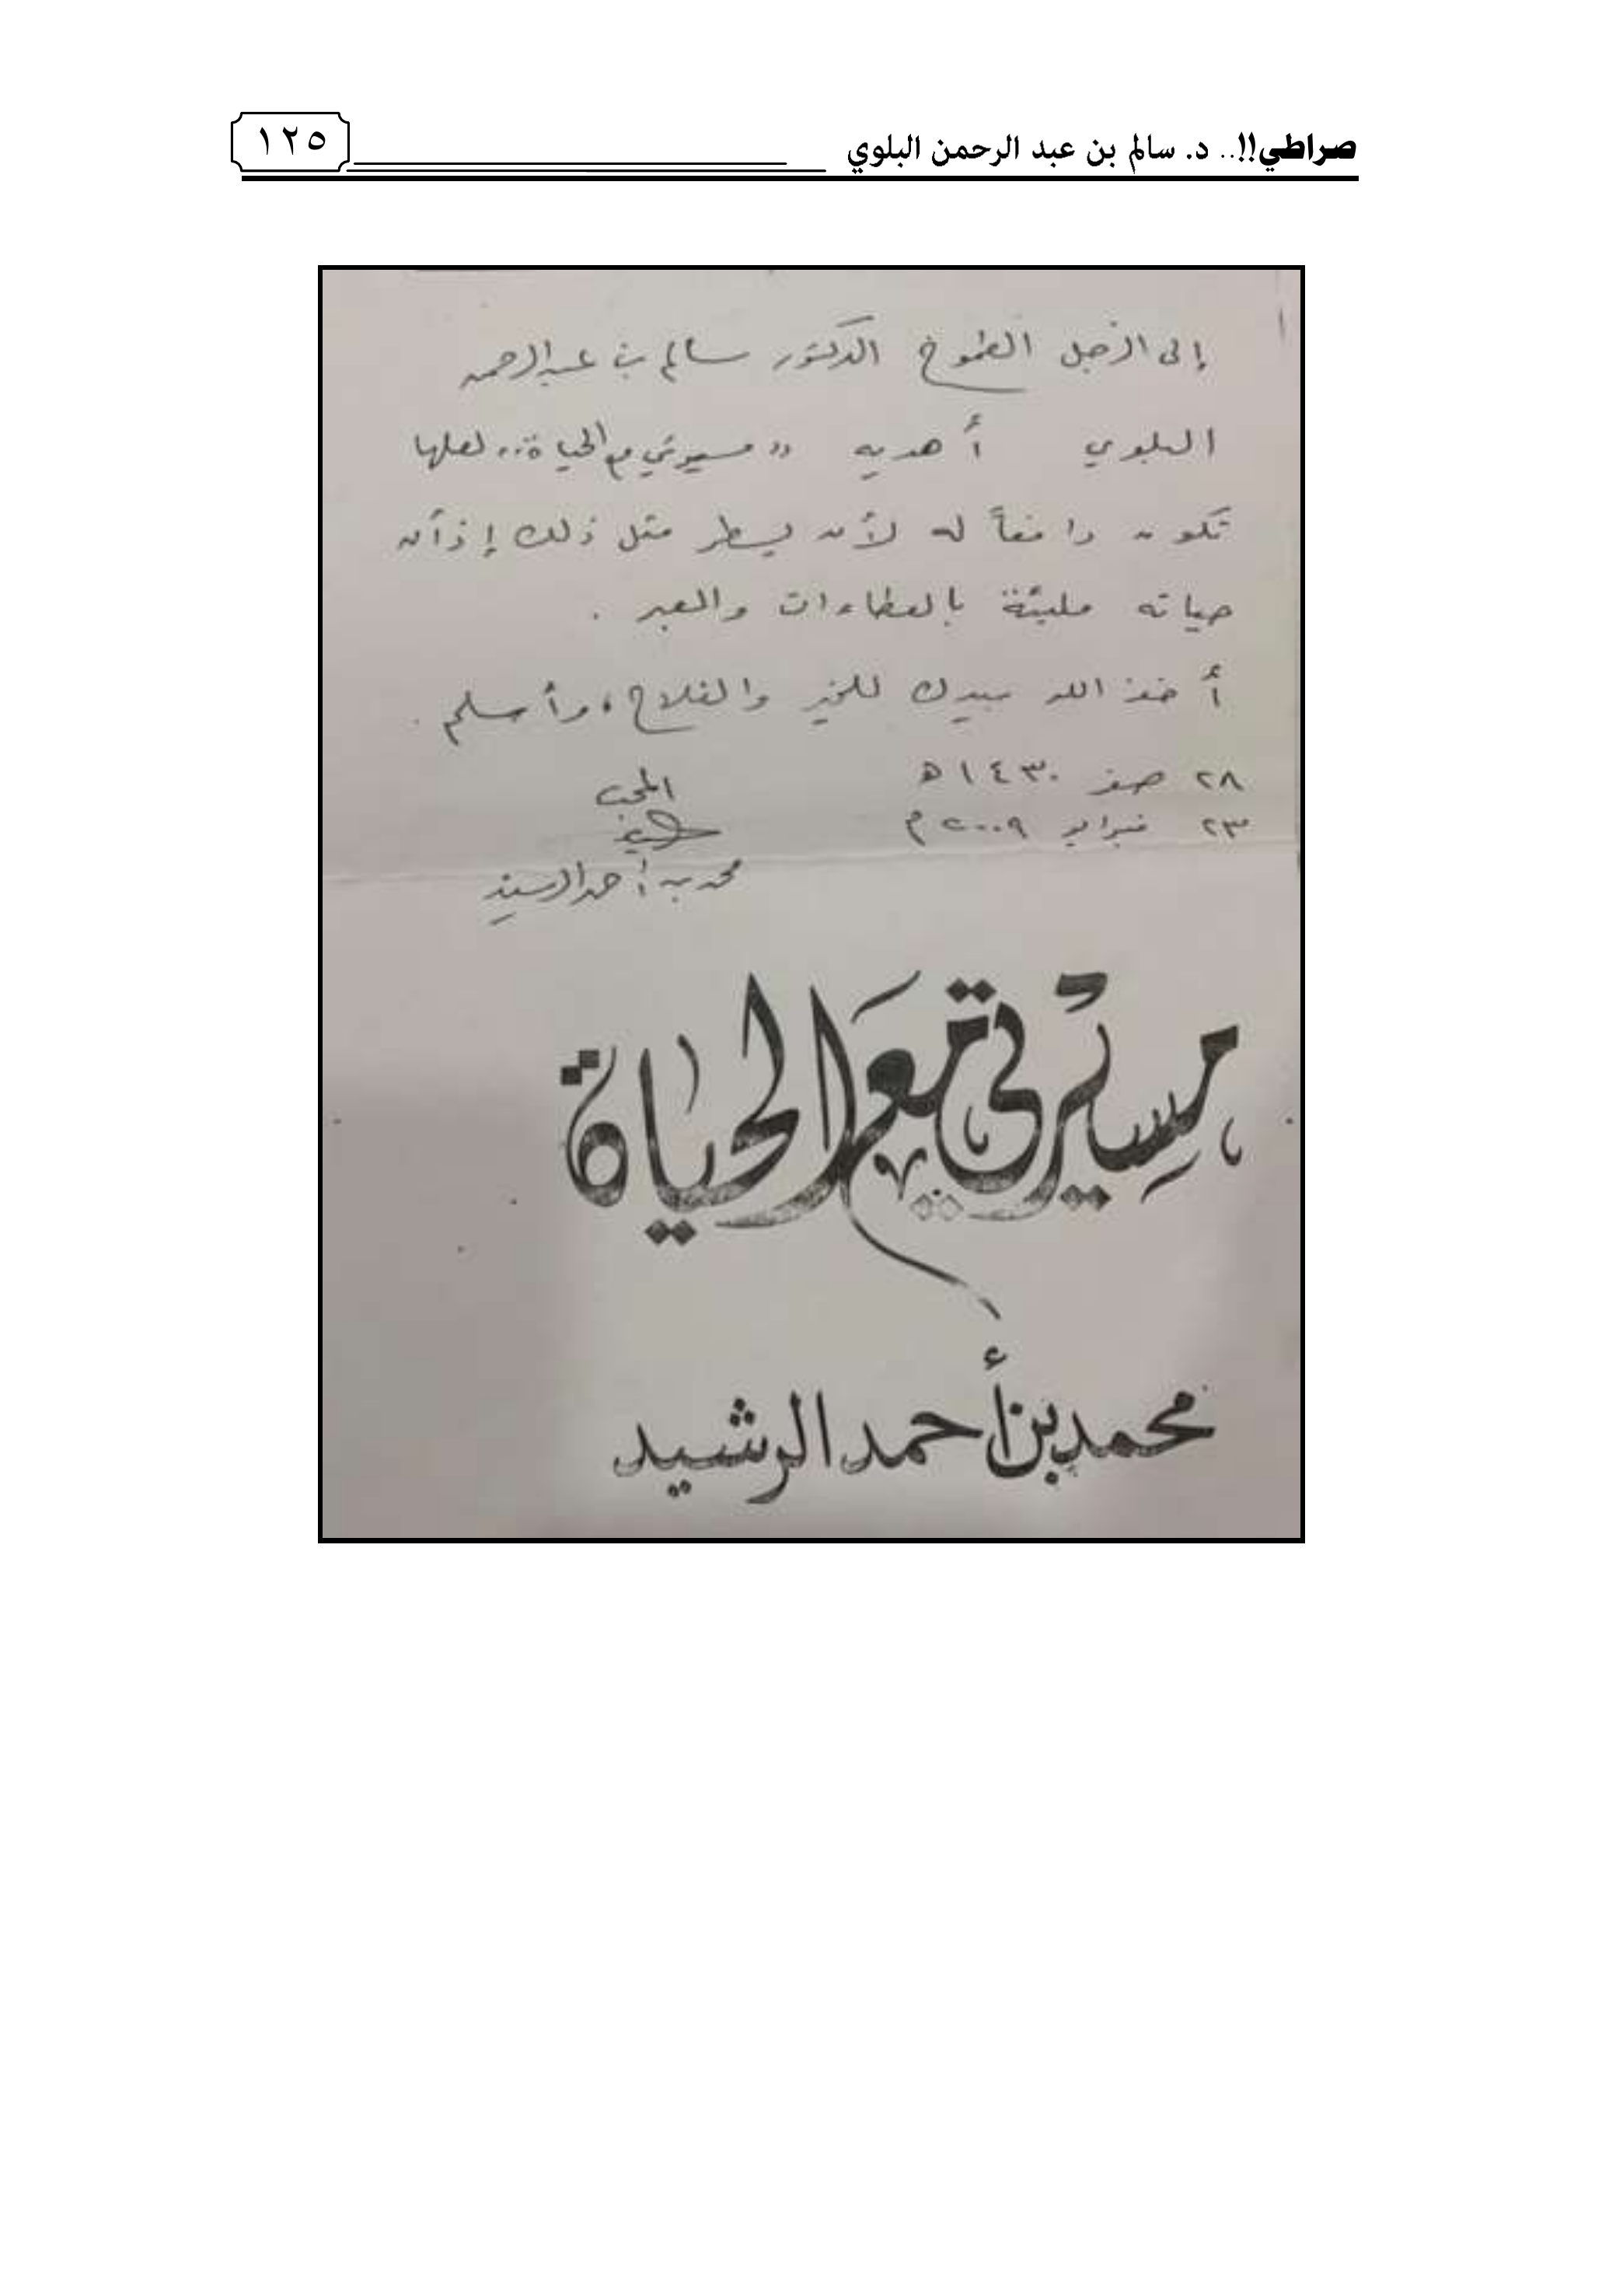 صراطي!!.. د. سالم بن عبد الرحمن البلوي
١٢٥
إلى الرجل الطموح الدكتور سالم بن عبدالرحمن
البلوي أهديه "مسيرتي مع الحياة" لعلها
تكون دافعاً له لأن يسطر مثل ذلك إذ أن
حياته مليئة بالعطاءات والعبر .
أخذ الله بيدك للخير والفلاح، وأسلم .
٢٨ صفر ١٤٣٠ هـ
٢٣ فبراير ٢٠٠٩ م
المحب
محمد بن أحمد الرشيد
مسيرتي مع الحياة
محمد بن أحمد الرشيد